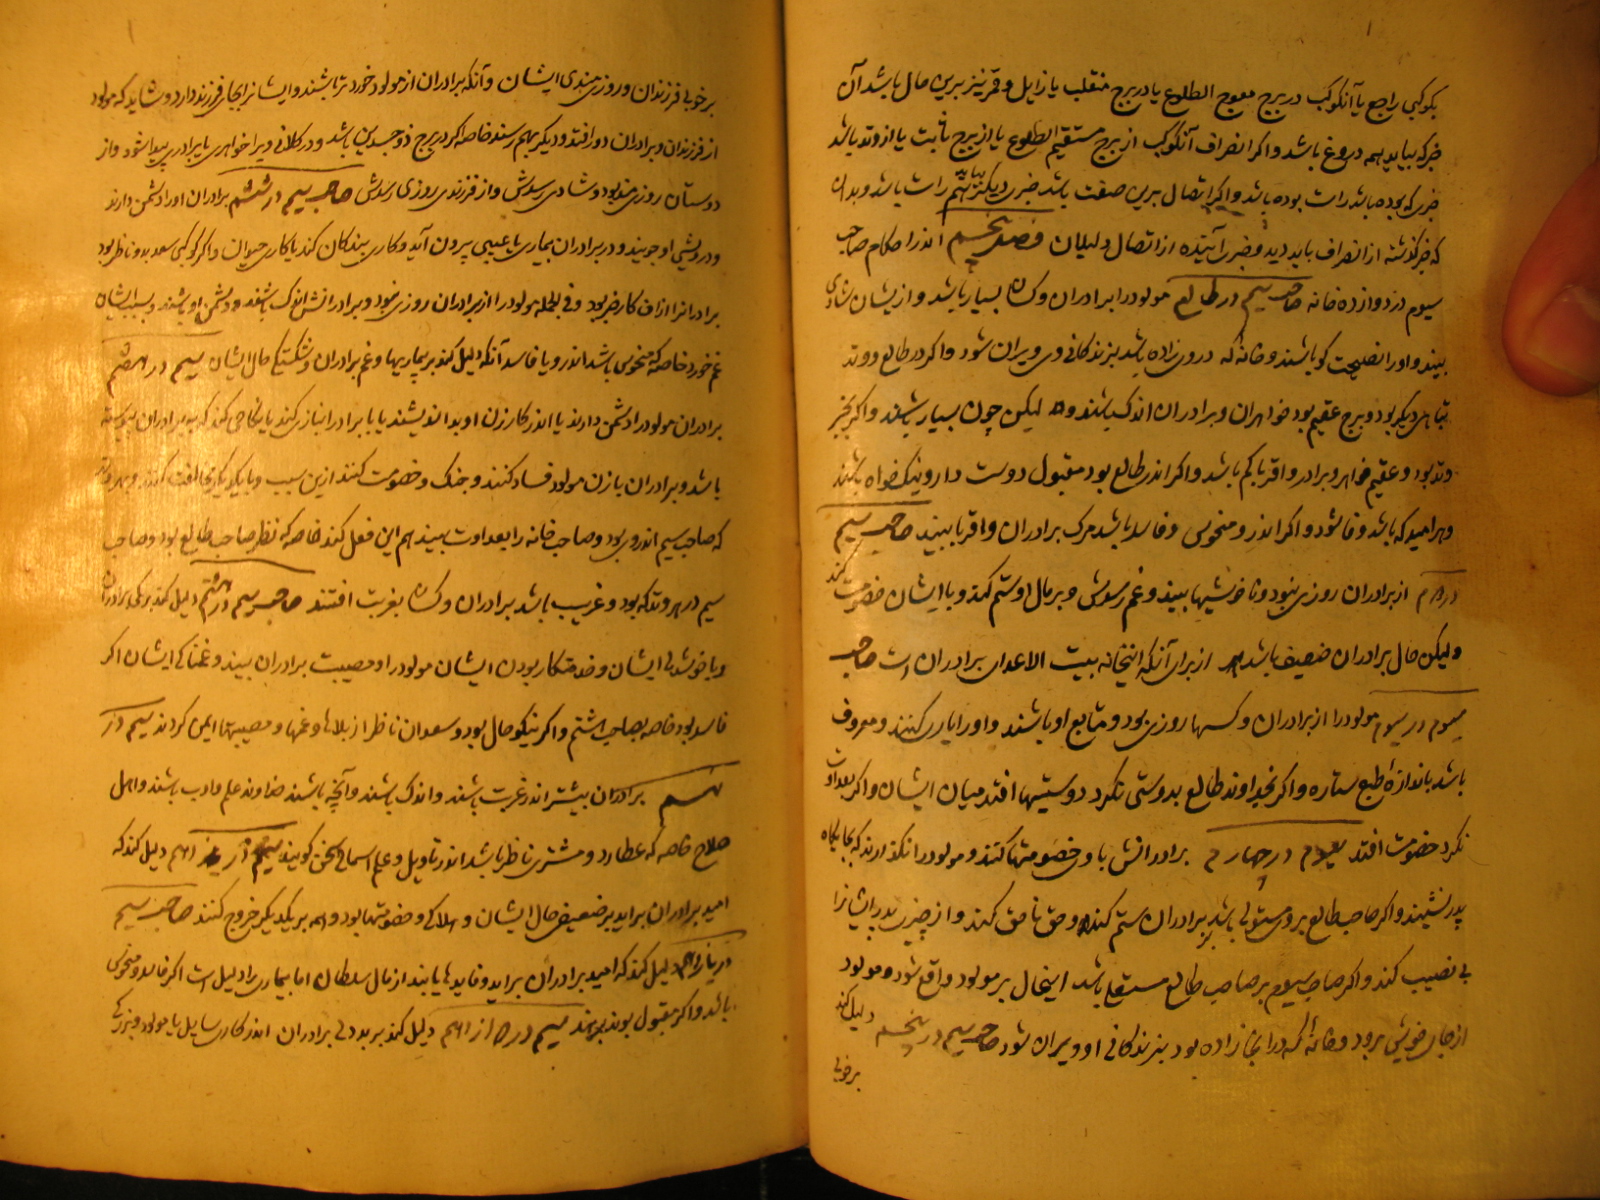 بکوکبی راجع یا آنکوکب در برج معوج الطلوع یا در برج منقلب یا زایل و قمر نیز برین حال باشد آن
خبر که بیاید همه دروغ باشد و اکر انصراف آنکوکب از برج مستقیم الطلوع یا از برج ثابت یا از وتد باشد
خبر که بوده باشد راست بوده باشد و اکر اتصال برین صفت باشد خبری دیکر بیاید هم راست باشد و بدان
که خبر کذشته از انصراف باید دید و خبر آینده از اتصال دلیلان فصل پنجم اندر احکام صاحب
سیوم در دوازده خانه صاحب سیم در طالع مولود را برادران و کسان بسیار باشد و از یشان شادی
بیند و او را نصیحت کو باشند و خانهٔ که در وی زاده باشد بزندکانی وی ویران شود و اکر در طالع دو وتد
تباهی دیکر بود و برج عقیم بود خواهران و برادران اندک باشند و لیکن چون بسیار باشند و اکر بخیر
وتد بود و عقیم خواهر و برادر و اقربا کم باشد و اکر اندر طالع بود مقبول دوست دار و نیک خواه باشند
و هر امید که باشد وفا شود و اکر اندرو منحوس و فاسد باشد مرک برادران و اقربا بیند صاحب سیم
در دوم از برادران روزی نبود و ناخوشیها بیند و غم رسدش و بر مال او ستم کنند و با ایشان خصومت کند
ولیکن حال برادران ضعیف باشد از برای آنکه اینخانه بیت الاعدای برادران است صاحب
سیوم در سیوم مولود را از برادران و کسها روزی بود و متابع او باشند و او را یاری کنند و معروف
باشد باندازهٔ طبع ستاره و اکر بخداوند طالع بدوستی نکرد دوستیها افتد میان ایشان و اکر بعداوت
نکرد خصومت افتد سیوم در چهارم برادرانش با وی خصومتها کنند و مولود را نکذارند که بجایکاه
پدر نشیند و اکر صاحب طالع بر وی مستولی باشد بر برادران ستم کند و حق ناحق کند و از چیز پدر ایشانرا
بی نصیب کند و اکر صاحب سیوم بر صاحب طالع مستعلی باشد اینحال بر مولود واقع شود و مولود
از جای خویش برود و خانهٔ که در آنجا زاده بود بزندکانی او ویران شود صاحب سیم در پنجم دلیل کند
بر خوبی
بر خوبی فرزندان و روزی مندی ایشان و آنکه برادران از مولود خورد تر باشند و ایشانرا بجای فرزند دارد و شاید که مولود
از فرزندان و برادران دور افتد و دیکر بهم رسند خاصه اکر در برج ذو جسدین باشد و در کلانی ویرا خواهری یا برادری پیدا شود و از
دوستان روزی مند بود و شادی رسدش و از فرزندی روزی رسدش صاحب سیم در ششم برادران او را دشمن دارند
و درویشی او جویند و در برادران بیماری یا عیبی پیرون آید و کاری بندکان کند یا کاری حیوان و اکر کوکبی سعد بدو ناظر بود
برادرانرا از آن کار خیر بود و فی الجمله مولود را از برادران روزی نبود و برادرانش اندک باشند و دشمن او باشند و بسبب ایشان
غم خورد خاصه که منحوس باشد اندرو یا فاسد آنکه دلیل کند بر بیماریها و غم برادران و شکستکی حال ایشان سیم در هفتم
برادران مولود را دشمن دارند یا اندر کار زن او بد اندیشند یا با برادر انبازی کند یا نکاحی کند که به برادران پیوسته
باشد و برادران با زن مولود فساد کنند و جنک و خصومت کنند ازین سبب و با یکدیکر مخالفت کنند و بهر وتد
که صاحب سیم اندر وی بود و صاحب خانه را بعداوت بیند هم این فعل کند خاصه که نظر صاحب طالع بود و صاحب
سیم در هر وتد که بود و غریب باشد برادران و کسان بغربت افتند صاحب سیم در هشتم دلیل کند بر مرکی برادران
و ناخوشدلی ایشان و خدمتکار بودن ایشان مولود را و مصیبت برادران بیند و غمناکی ایشان اکر
فاسد بود خاصه بصاحب هشتم و اکر نیکو حال بود و سعودان ناظر از بلاها و غمها و مصیبتها ایمن کردند سیم در
نهم برادران بیشتر اندر غربت باشند و اندک باشند و آنچه باشند خداوند علم و ادب باشند و اهل
صلاح خاصه که عطارد و مشتری ناظر باشد اندر تاویل و علم اسمانی سخن کویند سیم در دهم دلیل کند که
امید برادران براید بر ضعیفی حال ایشان و هلاکی و خصومتها بود و همه بر یکدیکر خروج کنند صاحب سیم
در یازدهم دلیل کند که امید برادران براید و فایدها یابند از مال سلطان اما بیماری را دلیل است اکر فاسد و منحوس
باشد و اکر مقبول بوند برهند سیم در دوازدهم دلیل کند بر بد دلی برادران اندر کار سایل یا مولود و بزرکی